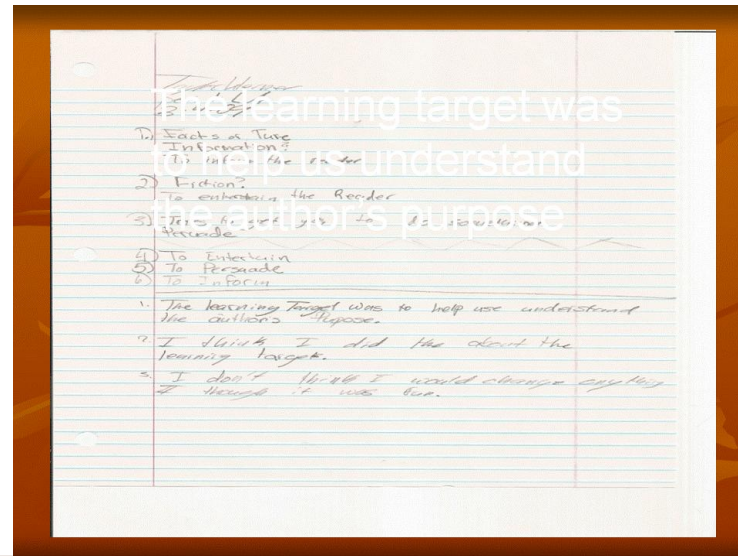 The learning target was
to help us understand
the author's purpose
1.) Facts a Ture
Information?
To inform the reader
2) Fiction?
To entertain the Reader
3) to get you to do
Persuade
4) To Entertain
5) To Persuade
6) To Inform
1. The learning Target was to help use understand
the author's Pupose.
2. I think I did the about the
learning target.
3. I don't think I would change any thing
I though it was fun.